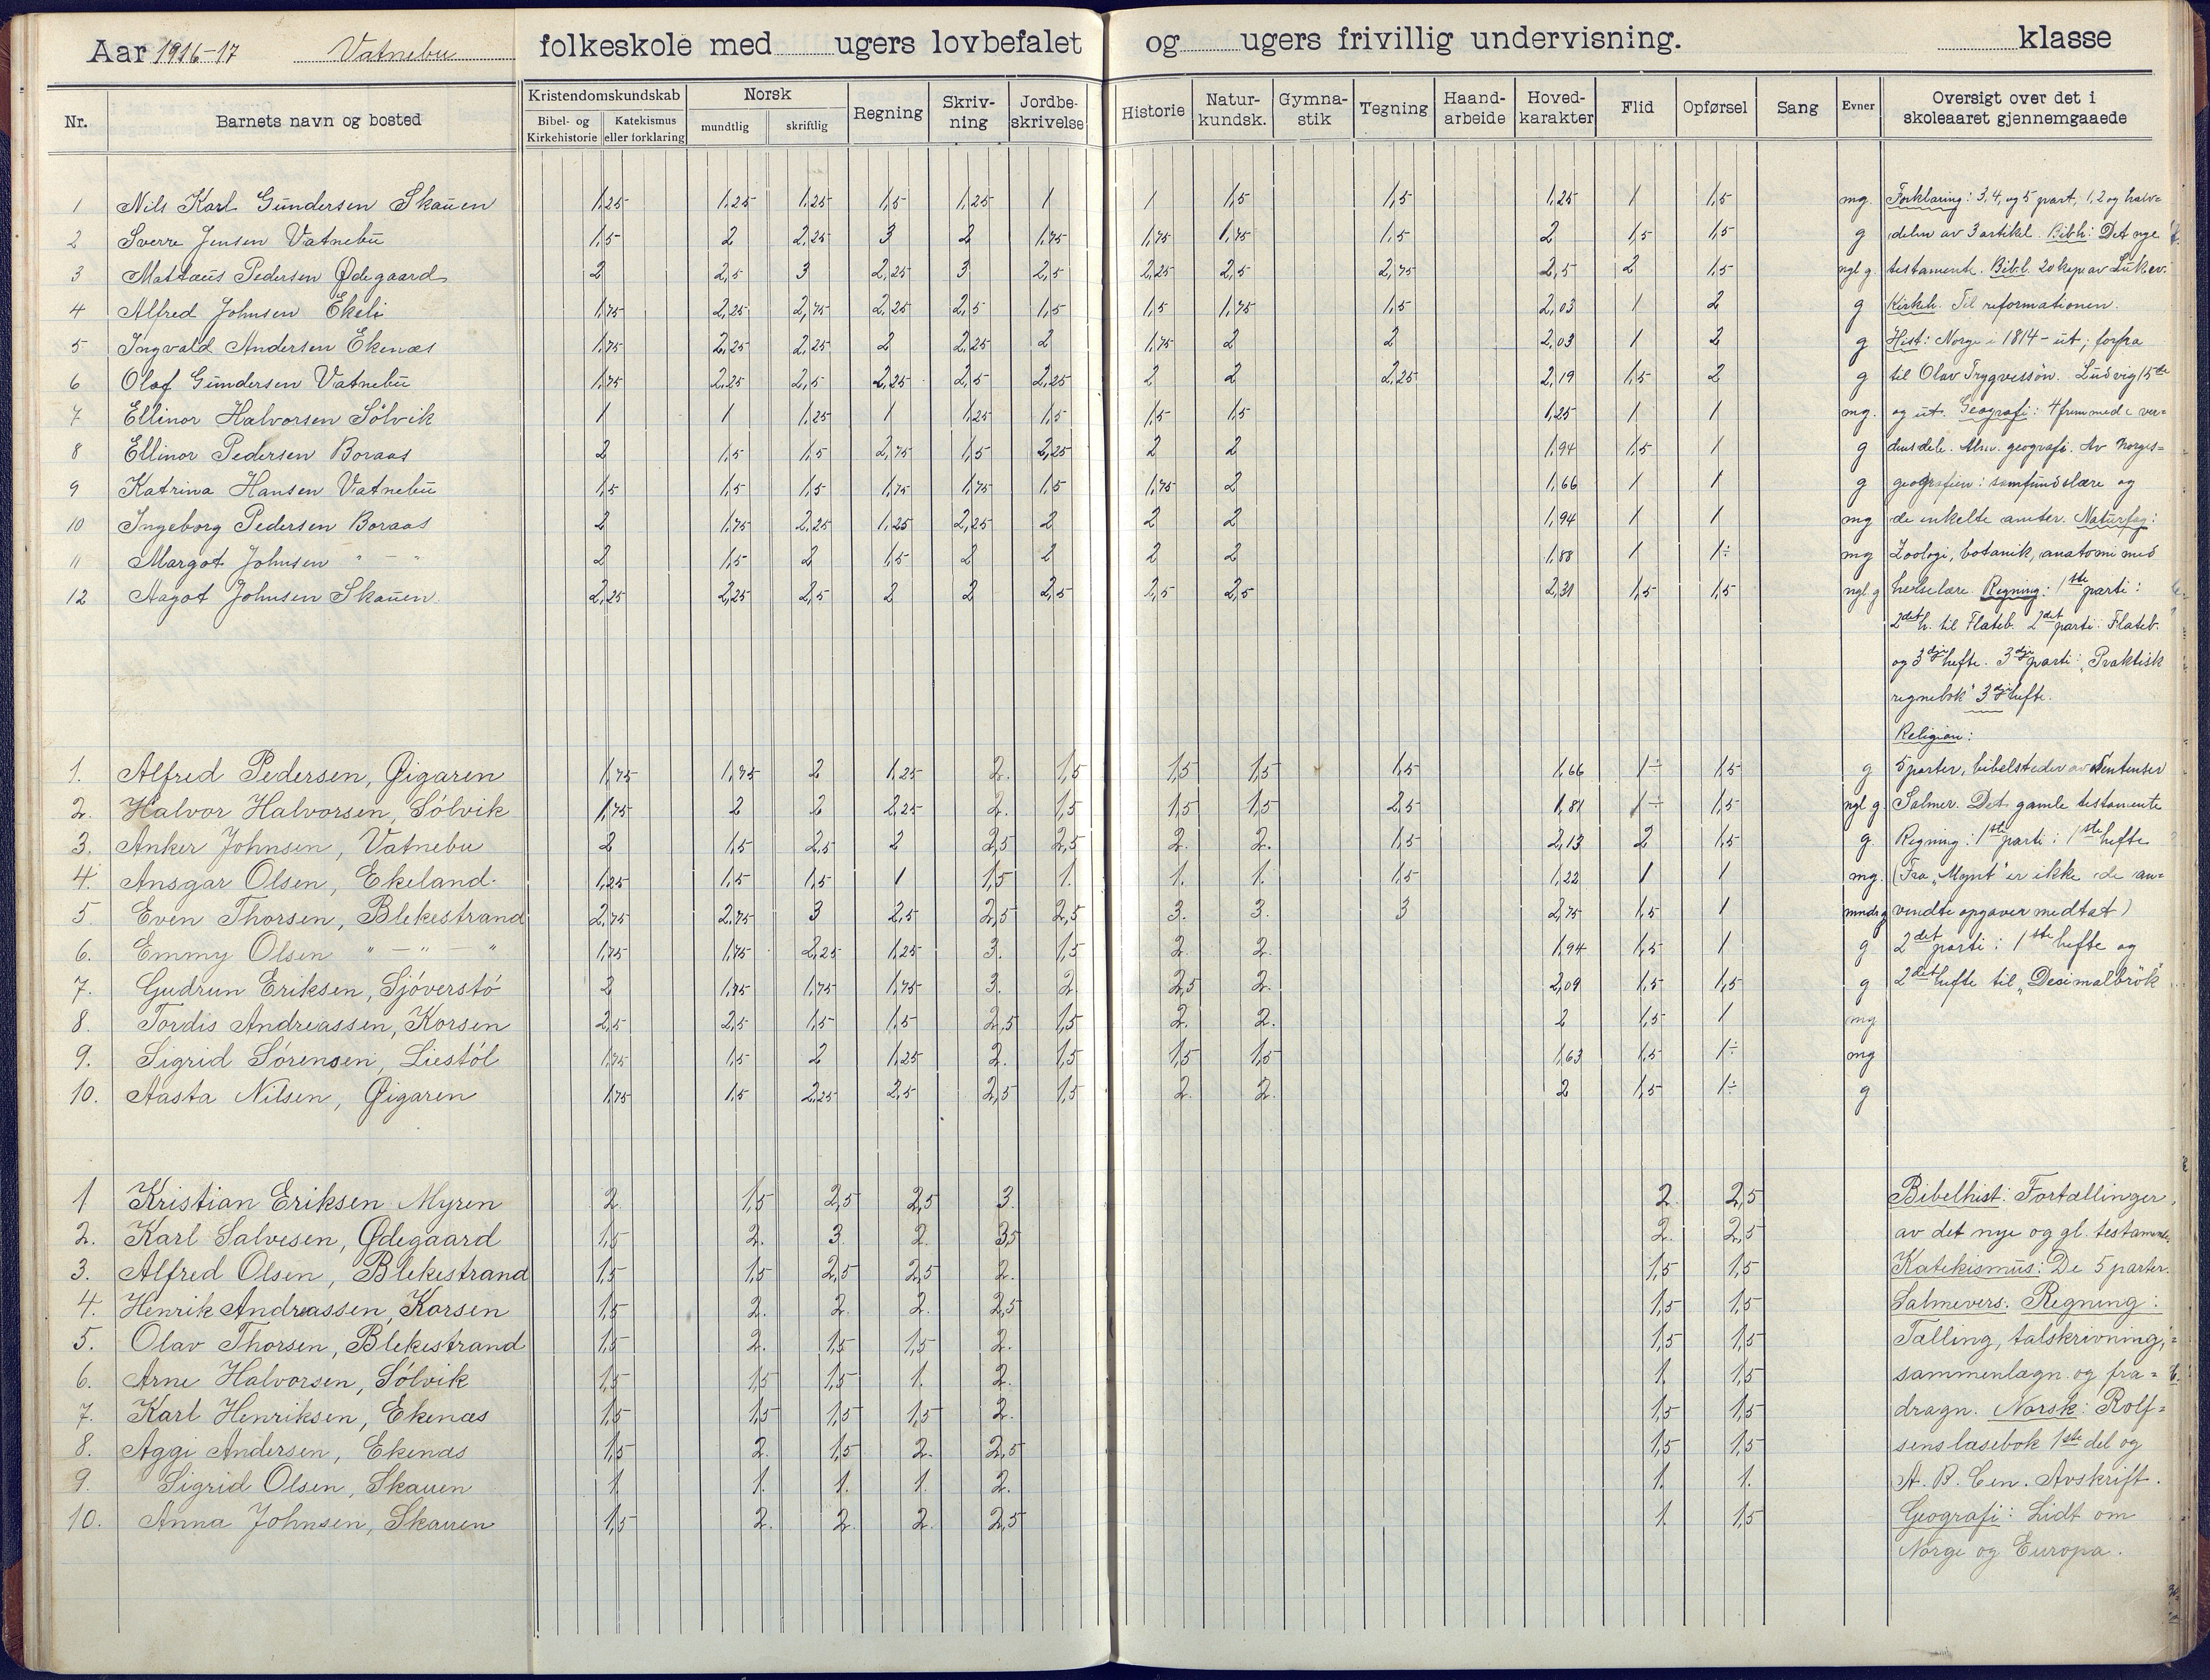 Aar 1916-17 Vatnebu folkeskole med ugers lovbefalet og ugers frivillig undervisning. klasse
Nr. Barnets navn og bosted Kristendomskundskab Bibel- og Kirkehistorie Katekismus eller forklaring Norsk mundtlig skriftlig Regning Skriv-ning Jordbe-skrivelse Historie Natur-kundsk. Gymna-stik Tegning Haand-arbeide Hoved-karakter Flid Opførsel Sang Evner Oversigt over det i skoleaaret gjennemgaaede
1 Nils Karl Gundersen Skauen 1,25 1,25 1,25 1,5 1,25 1 1 1,5 1,5 1,25 1 1,5 mg. Forklaring: 3,4, og 5 part, 1,2 og halv=
2 Sverre Jensen Vatnebu 1,5 2 2,25 3 2 1,75 1,75 1,75 1,5 2 1,5 1,5 g delen av 3 artikel. Bibh: Det nye
3 Mattæus Pedersen Ødegaard 2 2,5 3 2,25 3 2,5 2,25 2,5 2,75 2,5 2 1,5 ngl g. testamente. Bibl. 20 kap av Luk.ev.
4 Alfred Johnsen Ekeli 1,75 2,25 2,75 2,25 2,5 1,5 1,5 1,75 1,5 2,03 1 2 g Kirkeh. Til reformationen.
5 Ingvald Andersen Ekenæs 1,75 2,25 2,25 2 2,25 2 1,75 2 2 2,03 1 2 g Hist: Norge i 1814 - ut; forfra
6 Olaf Gundersen Vatnebu 1,75 2,25 2,5 2,25 2,5 2,25 2 2 2,25 2,19 1,5 2 g til Olav Trygvessøn. Ludvig 15de
7 Ellinor Halvorsen Sølvik 1 1 1,25 1 1,25 1,5 1,5 1,5 1,25 1 1 mg. og ut. Geografi: 4 fremmede ver=
8 Ellinor Pedersen Boraas 2 1,5 1,5 2,75 1,5 2,25 2 2 1,94 1,5 1 g densdele. Alm. geografi. Av Norges=
9 Katrina Hansen Vatnebu 1,5 1,5 1,5 1,75 1,75 1,5 1,75 2 1,66 1 1 g geografien: samfundslære og
10 Ingeborg Pedersen Boraas 2 1,75 2,25 1,25 2,25 2 2 2 1,94 1 1 mg de enkelte amter. Naturfag:
11 Margot Johnsen " - " 2 1,5 2 1,5 2 2 2 2 1,88 1 1÷ mg Zoologi, botanik, anatomi med
12 Aagot Johnsen Skauen. 2,25 2,25 2,5 2 2 2,5 2,5 2,5 2,31 1,5 1,5 ngl g helselære. Regning: 1ste parti:
2det h. til Flateb. 2det parti: Flateb.
og 3dje hefte. 3dje parti: "Praktisk
regnebok" 3dje hefte.
Religion:
1. Alfred Pedersen, Øigaren 1,75 1,75 2 1,25 2. 1,5 1,5 1,5 1,5 1,66 1÷ 1,5 g 5 parter, bibelsteder av Sentenser
2. Halvor Halvorsen, Sølvik 1,75 2 2 2,25 2. 1,5 1,5 1,5 2,5 1,81 1÷ 1,5 ngl g. Salmer. Det gamle testamente
3. Anker Johnsen, Vatnebu 2 1,5 2,5 2 2,5 2,5 2. 2. 1,5 2,13 2 1,5 g Regning: 1ste parti: 1ste hefte
4. Ansgar Olsen, Ekeland. 1,25 1,5 1,5 1 1,5 1. 1. 1. 1,5 1,22 1 1 mg. (Fra "Mynt" er ikke de an=
5 Even Thorsen, Blekestrand 2,75 2,75 3 2,5 2,5 2,5 3. 3. 3 2,75 1,5 1 mndr g vendte opgaver medtat)
6. Emmy Olsen " - " - " 1,75 1,75 2,25 1,25 3. 1,5 2. 2. 1,94 1,5 1 g 2det parti: 1ste hefte og
7. Gudrun Eriksen, Sjøverstø 2 1,75 1,75 1,75 3. 2 2,5 2. 2,09 1,5 1,5 g 2det hefte til "Desimalbrøk"
8. Tordis Andreassen, Korsen 2,5 2,5 1,5 1,5 2,5 1,5 2. 2. 2 1,5 1 mg
9. Sigrid Sørensen, Liestøl 1,75 1,5 2 1,25 2. 1,5 1,5 1,5 1,63 1,5 1÷ mg
10. Aasta Nilsen, Øigaren 1,75 1,5 2,25 2,5 2,5 1,5 2. 2. 2 1,5 1÷ g
1 Kristian Eriksen Myren 2. 1,5 2,5 2,5 3. 2. 2,5 Bibelhist: Fortællinger
2. Karl Salvesen, Ødegaard 1,5 2. 3. 2. 3,5 2. 2,5 av det nye og gl. testamente.
3. Alfred Olsen, Blekestrand 1,5 1,5 2,5 2,5 2. 1,5 1,5 Katekismus: De 5 parter.
4. Henrik Andreassen, Korsen 1,5 2. 2. 2. 2,5 1,5 1,5 Salmevers. Regning:
5. Olav Thorsen, Blekestrand 1,5 2. 1,5 1,5 2. 1,5 1,5 Tælling, talskrivning,
6. Arne Halvorsen, Sølvik 1,5 1,5 1,5 1. 2. 1. 1,5 sammenlægn. og fra=
7. Karl Henriksen, Ekenæs 1,5 1,5 1,5 1,5 2. 1,5 1,5 dragn. Norsk: Rolf=
8. Agge Andersen, Ekenæs 1,5 2. 1,5 2. 2,5 1,5 1,5 sens læsebok 1ste del og
9. Sigrid Olsen, Skauen 1 1. 1. 1. 2. 1. 1. A. B. Cen. Avskrift.
10. Anna Johnsen, Skauen 1,5 2. 2. 2. 2,5 1. 1,5 Geografi: Lidt om
Norge og Europa.